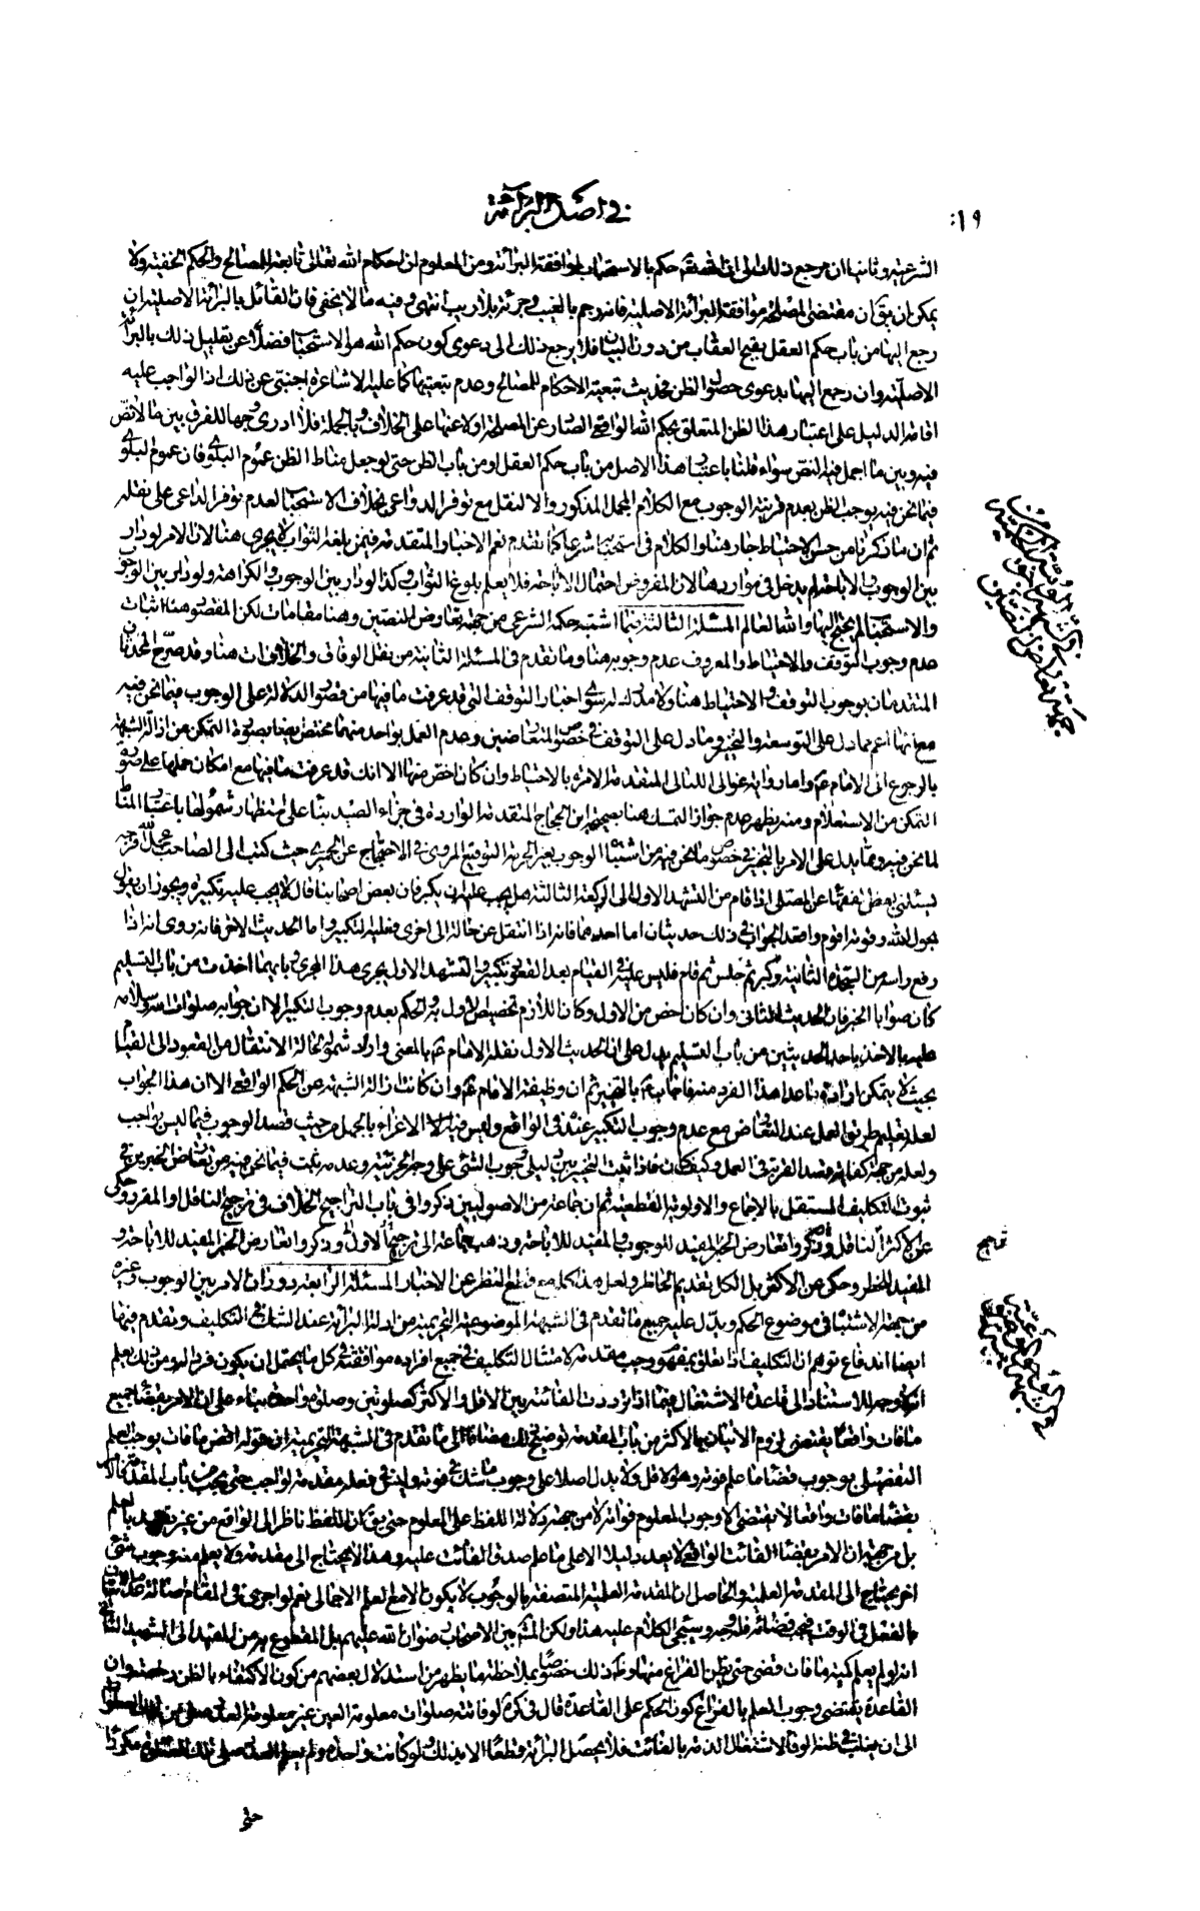 في اصل البرائة
١٩:
الشرعية وثانيا ان مرجع ذلك الى ان حكم بالاستحباب لموافقة البرائة ومن المعلوم ان احكام الله تعالى تابعة للمصالح والحكم الخفية ولا
يمكن ان يق ان مقتضى المصلحة موافقة البرائة الاصلية فانه رجم بالغيب وجرئة بلا ريب انتهى وفيه ما لا يخفى فان القائل بالبرائة الاصلية ان
رجع اليها من باب حكم العقل بقبح العقاب من دون البيان فلا يرجع ذلك الى دعوى كون حكم الله هو الاستحباب فضلا عن تعليل ذلك بالبرائة
الاصلية وان رجع اليها بدعوى حصول الظن فحديث تبعية الاحكام للمصالح وعدم تبعيتها كما عليه الاشاعرة اجنبى عن ذلك اذ الواجب عليه
اقامة الدليل على اعتبار هذا الظن المتعلق بحكم الله الواقعى الصادر عن المصلحة او لا عنها على الخلاف وبالجملة فلا ادرى وجها للفرق بين ما لا نص
فيه وبين ما اجمل فيه النص سواء قلنا باعتبار هذا الاصل من باب حكم العقل او من باب الظن حتى لو جعل مناط الظن عموم البلوى فان عموم البلوى
فيما نحن فيه يوجب الظن بعدم قرينة الوجوب مع الكلام المجمل المذكور والا لنقل مع توفر الدواعى بخلاف الاستحباب لعدم توفر الدواعى على نقله
ثم ان ما ذكرنا من حسن الاحتياط جار هنا والكلام فى استحبابه شرعا كما تقدم نعم الاخبار المتقدمة فيمن بلغه الثواب لا يجرى هنا لان الامر لو دار
بين الوجوب والاباحة لم يدخل فى مواردها لان المفروض احتمال الاباحة فلا يعلم بلوغ الثواب وكذا لو دار بين الوجوب والكراهة ولو دار بين الوجوب
والاستحباب لم يحتج اليها والله العالم المسئلة الثالثة فيما اشتبه حكمه الشرعى من جهة تعارض النصين وهنا مقامات لكن المقصود هنا اثبات
عدم وجوب التوقف والاحتياط والمعروف عدم وجوبه هنا وما تقدم فى المسئلة الثانية من نقل الوفاق والخلاف ات هنا وقد صرح المحدثان
المتقدمان بوجوب التوقف والاحتياط هنا ولا مدرك له سوى اخبار التوقف التى قد عرفت ما فيها من قصور الدلالة على الوجوب فيما نحن فيه
مع انها اعم مما دل على التوسعة والتخيير وما دل على التوقف فى خصوص المتعارضين وعدم العمل بواحد منهما مختص ايضا بصورة التمكن من ازالة الشبهة
بالرجوع الى الامام ع واما رواية عوالى اللئالى المتقدمة الامرة بالاحتياط وان كان اخص منها الا انك قد عرفت ما فيها مع امكان حملها على صورة
التمكن من الاستعلام ومنه يظهر عدم جواز التمسك هنا بصحيحة ابن الحجاج المتقدمة الواردة فى جزاء الصيد بناء على استظهار شمولها باعتبار المناط
لما نحن فيه ومما يدل على الامر بالتخيير فى خصوص ما نحن فيه من اشتباه الوجوب بغير الحرمة التوقيع المروى فى الاحتجاج عن الحميرى حيث كتب الى الصاحب عجل الله فرجه
يسئلنى بعض الفقهاء عن المصلى اذا قام من التشهد الاول الى الركعة الثالثة هل يجب عليه ان يكبر فان بعض اصحابنا قال لا يجب عليه تكبيرة ويجوز ان يقول
بحول الله وقوته اقوم واقعد الجواب فى ذلك حديثان اما احدهما فانه اذا انتقل عن حالة الى اخرى فعليه التكبير واما الحديث الاخر فانه روى انه اذا
رفع راسه من السجدة الثانية وكبر ثم جلس ثم قام فليس عليه فى القيام بعد القعود تكبير والتشهد الاول يجرى هذا المجرى بايهما اخذت من باب التسليم
كان صوابا الخبر فان الحديث الثانى وان كان اخص من الاول وكان اللازم تخصيص الاول به والحكم بعدم وجوب التكبير الا ان جوابه صلوات الله وسلامه
عليه بالاخذ باحد الحديثين من باب التسليم يدل على ان الحديث الاول نقله الامام ع بالمعنى واراد شموله لحالة الانتقال من القعود الى القيام
بحيث لا يتمكن ارادة ما عدا هذا الفرد منه فاجاب ع بالتخيير ثم ان وظيفة الامام ع وان كانت ازالة الشبهة عن الحكم الواقعى الا ان هذا الجواب
لعله تعليم طريق العمل عند التعارض مع عدم وجوب التكبير عنده فى الواقع وليس فيه الاغراء بالجهل من حيث قصد الوجوب فيما ليس بواجب
ولعله من جهة كفاية قصد القربة فى العمل وكيف كان فاذا ثبت التخيير بين دليلى وجوب الشئ على وجه الجزئية وعدمه ثبت فيما نحن فيه من تعارض الخبرين فى
ثبوت التكليف المستقل بالاجماع والاولوية القطعية ثم ان جماعة من الاصوليين ذكروا فى باب التراجيح الخلاف فى ترجيح الناقل او المقرر وحكى
عن الاكثر الناقل وذكروا تعارض الخبر المفيد للوجوب والمفيد للاباحة وذهب جماعة الى ترجيح الاول وذكروا تعارض الخبر المفيد للاباحة و
المفيد للحظر وحكى عن الاكثر بل الكل تقديم الحاظر ولعل هذا كله مع قطع النظر عن الاخبار المسئلة الرابعة دوران الامر بين الوجوب وغيره
من جهة الاشتباه فى موضوع الحكم ويدل عليه جميع ما تقدم فى الشبهة الموضوعية التحريمية من ادلة البرائة عند الشك فى التكليف وتقدم فيها
ايضا اندفاع توهم ان التكليف اذا تعلق بمفهوم وجب مقدمة لامتثال التكليف فى جميع افراده موافقته فى كل ما يحتمل ان يكون فردا له ومن ذلك يعلم
انه لا وجه للاستناد الى قاعدة الاشتغال فيما اذا ترددت الفائتة بين الاقل والاكثر كصلوتين وصلوة واحدة بناء على ان الامر بقضاء جميع
ما فات واقعا يقتضى لزوم الاتيان بالاكثر من باب المقدمة توضيح ذلك مضافا الى ما تقدم فى الشبهة التحريمية ان قوله اقض ما فات يوجب العلم
التفصيلى بوجوب قضاء ما علم فوته وهو الاقل ولا يدل اصلا على وجوب ما شك فى فوته وليس فعله مقدمة لواجب حتى يجب من باب المقدمة فالامر
بقضاء ما فات واقعا لا يقتضى الا وجوب المعلوم فواته لا من جهة دلالة اللفظ على المعلوم حتى يق ان اللفظ ناظر الى الواقع من غير تقييد بالعلم
بل من جهة ان الامر بقضاء الفائت الواقعى لا يعد دليلا الا على ما علم صدق الفائت عليه وهذا لا يحتاج الى مقدمة ولا يعلم منه وجوب شئ
اخر يحتاج الى المقدمة العلمية والحاصل ان المقدمة العلمية المتصفة بالوجوب لا يكون الا مع العلم الاجمالى نعم لو اجرى فى المقام اصالة عدم الاتيان
بالفعل فى الوقت فيجب قضائه فله وجه وسيجئ الكلام عليه هذا ولكن المش بين الاصحاب رضوان الله عليهم بل المقطوع به من المفيد الى الشهيد الثانى
انه لو لم يعلم كمية ما فات قضى حتى يظن الفراغ منها وظ ذلك خصوصا بملاحظة ما يظهر من استدلال بعضهم من كون الاكتفاء بالظن رخصة وان
القاعدة يقتضى وجوب العلم بالفراغ كون الحكم على القاعدة قال فى كرة لو فاتته صلوات معلومة العين غير معلومة العدد صلى من تلك الصلوات
الى ان يغلب فى ظنه الوفاء لاشتغال الذمة بالفائت فلا يحصل البرائة قطعا الا بذلك ولو كانت واحدة ولم يعلم العدد صلى تلك الصلوة مكررا
حتى